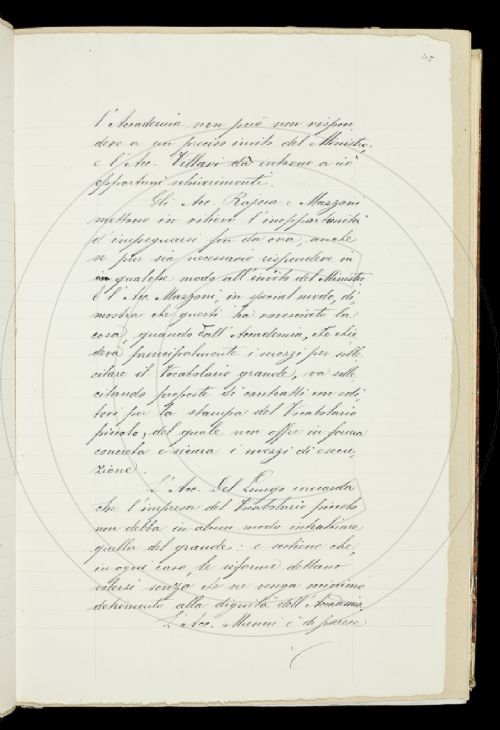 45
l'Accademia non può non rispon,
dere a un preciso invito del Ministro,
e l'Acc. Villari dà intorno a ciò
opportuni schiarimenti.
Gli Acc. Rajna e Mazzoni
mettono in rilievo l'inopportunità
d'impegnarsi fin da ora, anche
se pur sia necessario rispondere in
qualche modo all'invito del Ministro.
E l'Acc. Mazzoni, in special modo, di,
mostra che questi ha rovesciato la
cosa, quando dall'Accademia, che chie
deva principalmente i mezzi per solle,
citare il Vocabolario grande, va solle,
citando proposte di contratti con edi,
tori per la stampa del Vocabolario
piccolo, del quale non offre in forma
concreta e sicura i mezzi di esecu,
zione.
L'Acc. Del Lungo ricorda
che l'impresa del Vocabolario piccolo
non debba in alcun modo intralciare
quella del grande: e sostiene che,
in ogni caso, le riforme debbano
volersi senza che ne venga minimo
detrimento alla dignità dell'Accademia.
L'Acc. è di parere